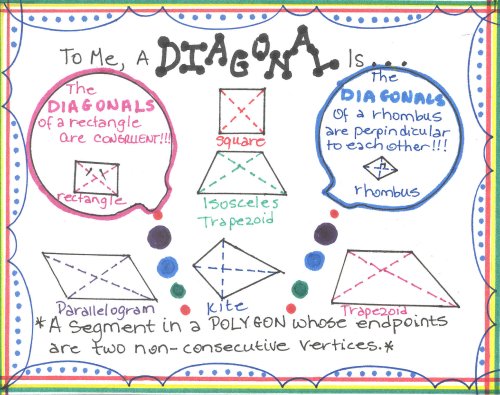 To Me, A DIAGONAL Is...
The
DIAGONALS
of a rectangle
are CONGRUENT!!!
rectangle
square
Isosceles
Trapezoid
The
DIAGONALS
Of a rhombus
are perpindicular
to each other!!!
rhombus
Parallelogram
Kite
Trapezoid
*A Segment in a POLYGON whose endpoints
are two non-consecutive vertices.*